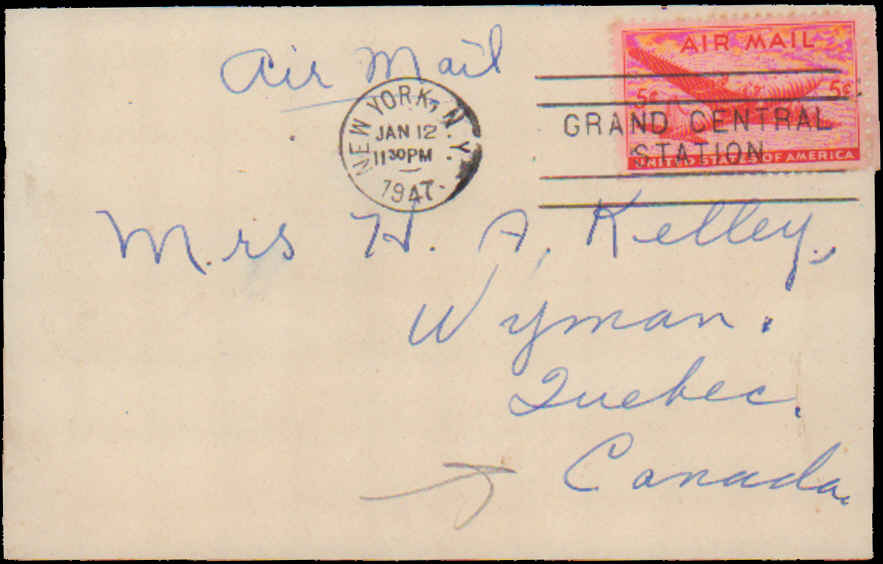 Air Mail
AIR MAIL
5¢ 5¢
UNITED STATES OF AMERICA
NEW YORK, N.Y.
JAN 12
11 30 PM
1947
GRAND CENTRAL
STATION
Mrs H. A. Kelley,
Wyman.
Quebec.
Canada.